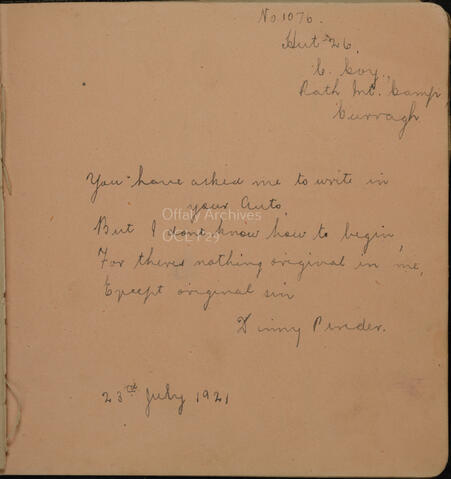 No. 1076.
Hut 26.
C. Coy.,
Rath Int. Camp,
Curragh
You have asked me to write in
your Auto,
But I dont know how to begin,
For theres nothing original in me,
Except original sin
Dinny Pender.
23rd July 1921
Offaly Archives
OCL P29